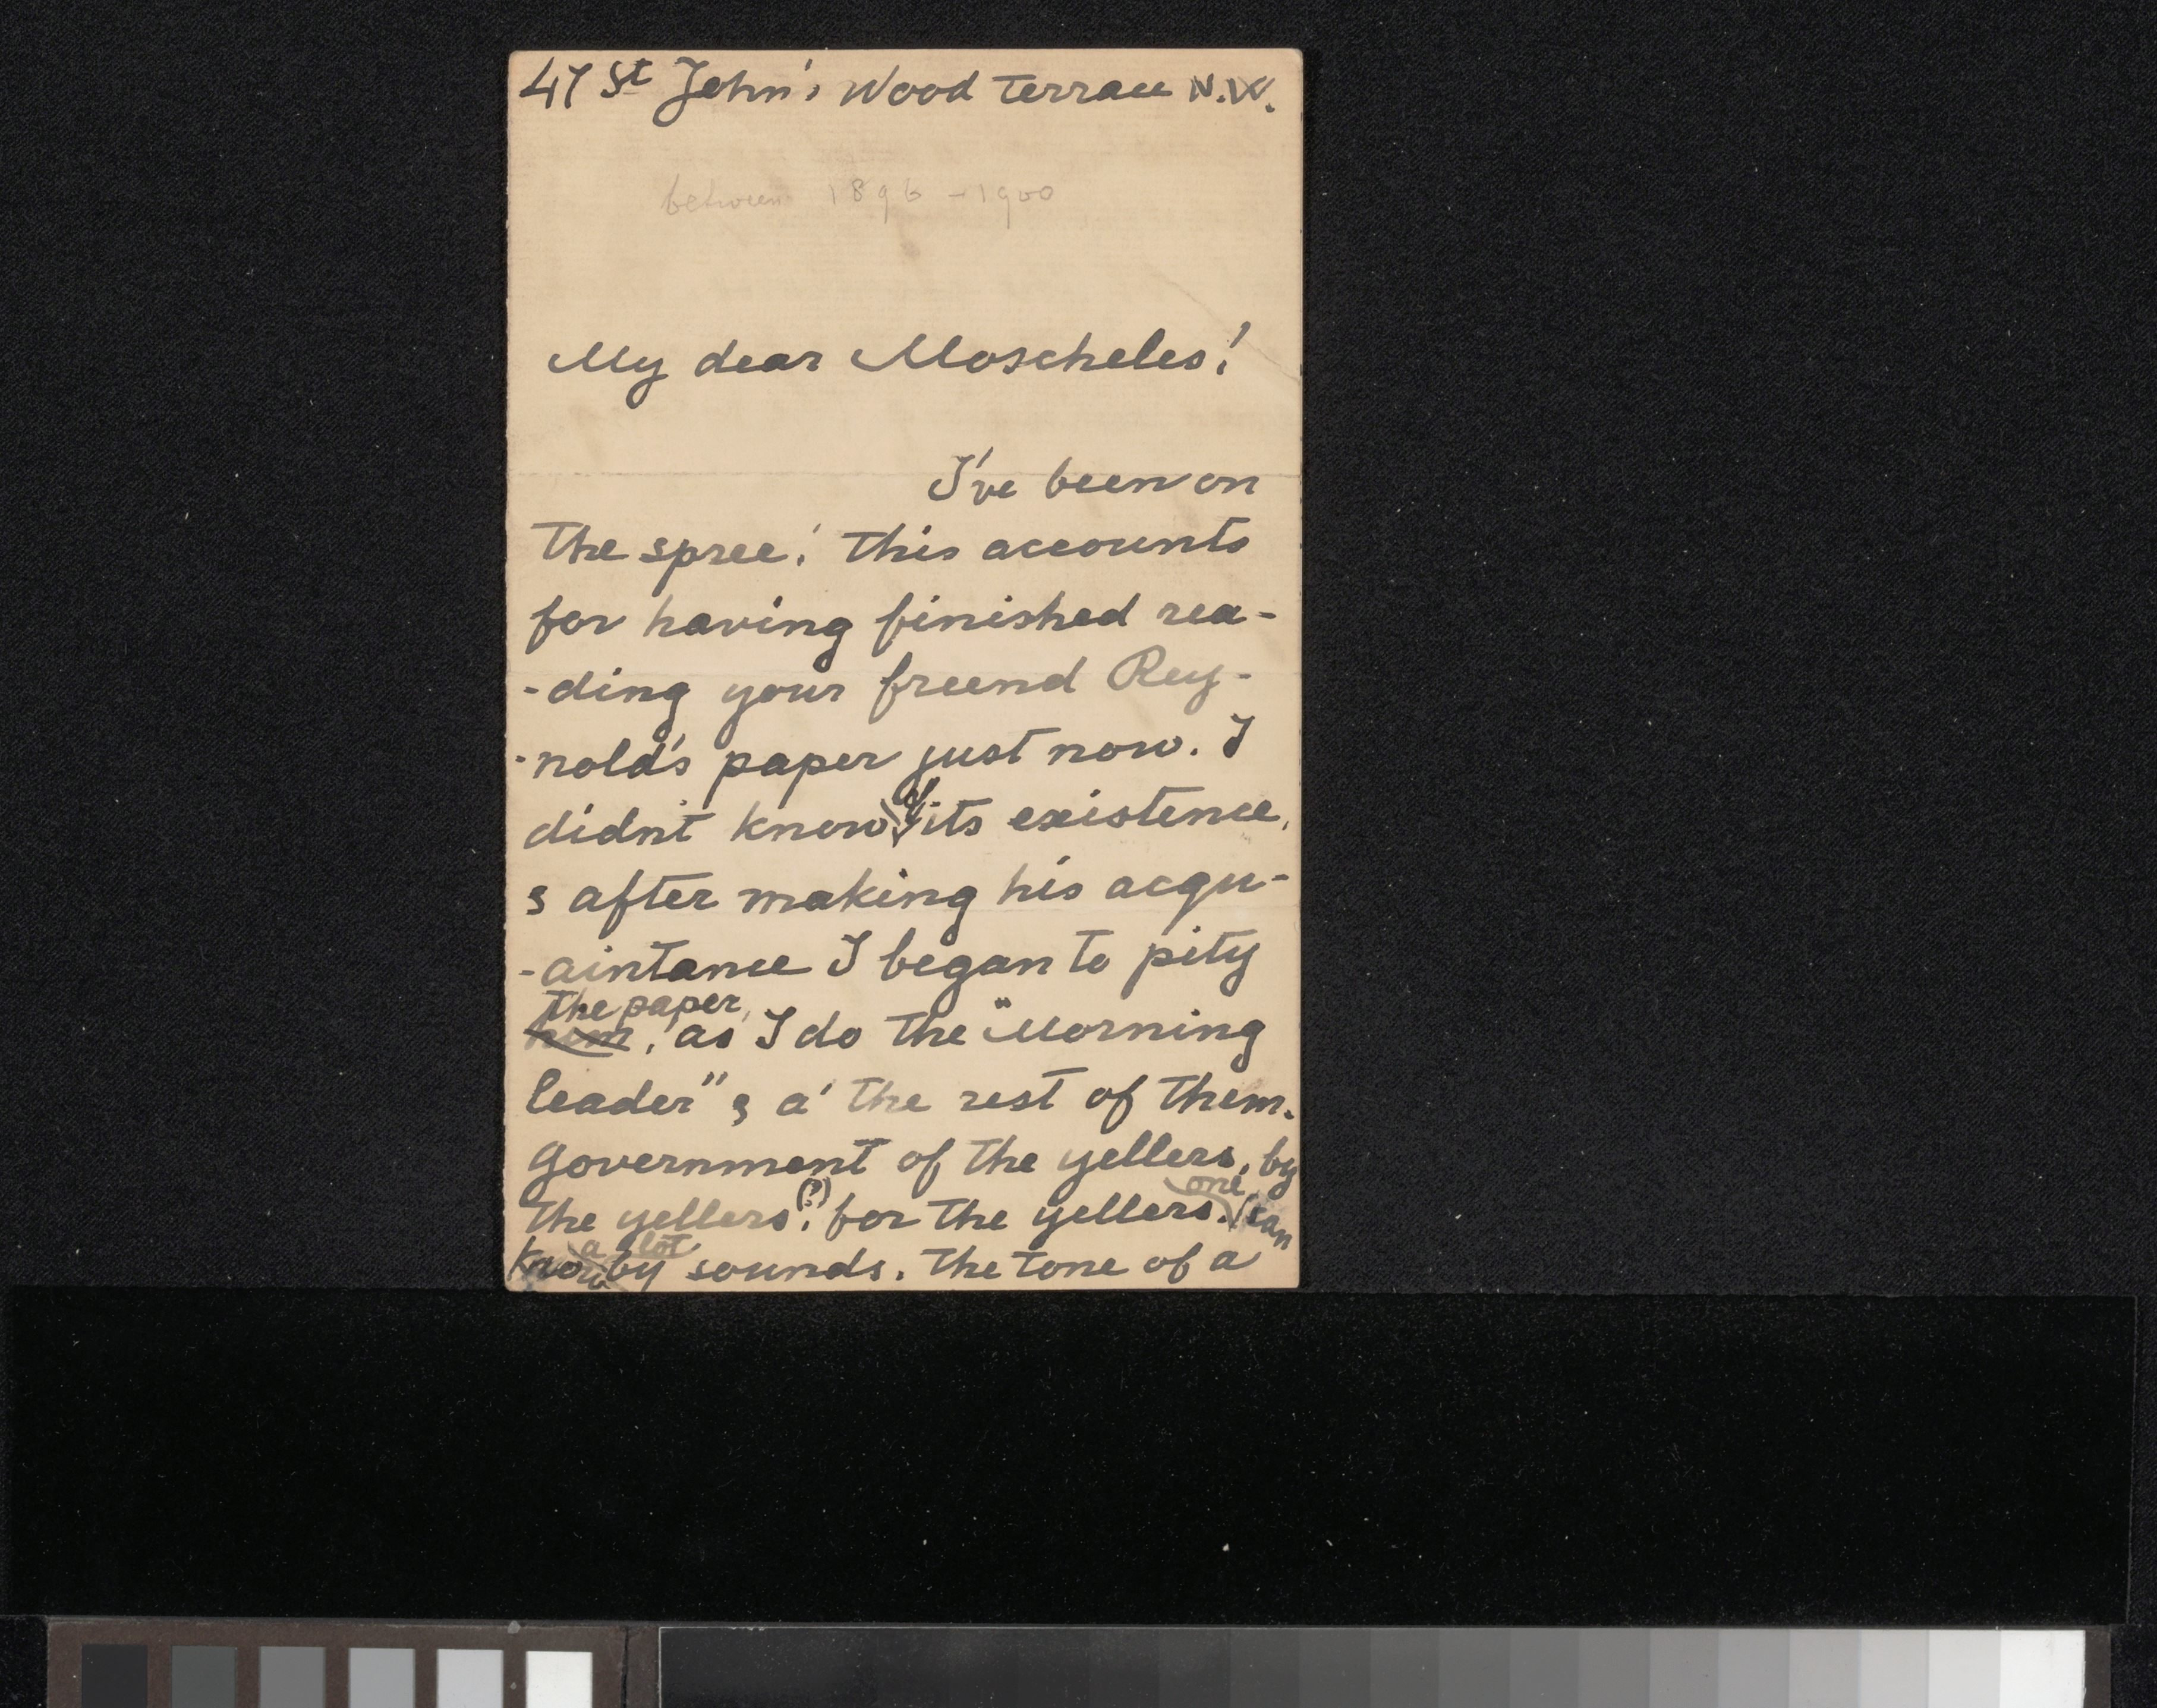 47 St John's Wood Terrace N.W.
between 1896 - 1900
My dear Moscheles!
I've been on
the spree! This accounts
for having finished rea-
-ding your freend Rey-
-nold's paper just now. I
didn't know of its existence,
& after making his acqu-
-aintance I began to pity
the paper,
him, as I do the "Morning
leader" & a' the rest of them.
Government of the yellers, by
the yellers (?), for the yellers. one can
know a lot by sounds. The tone of a